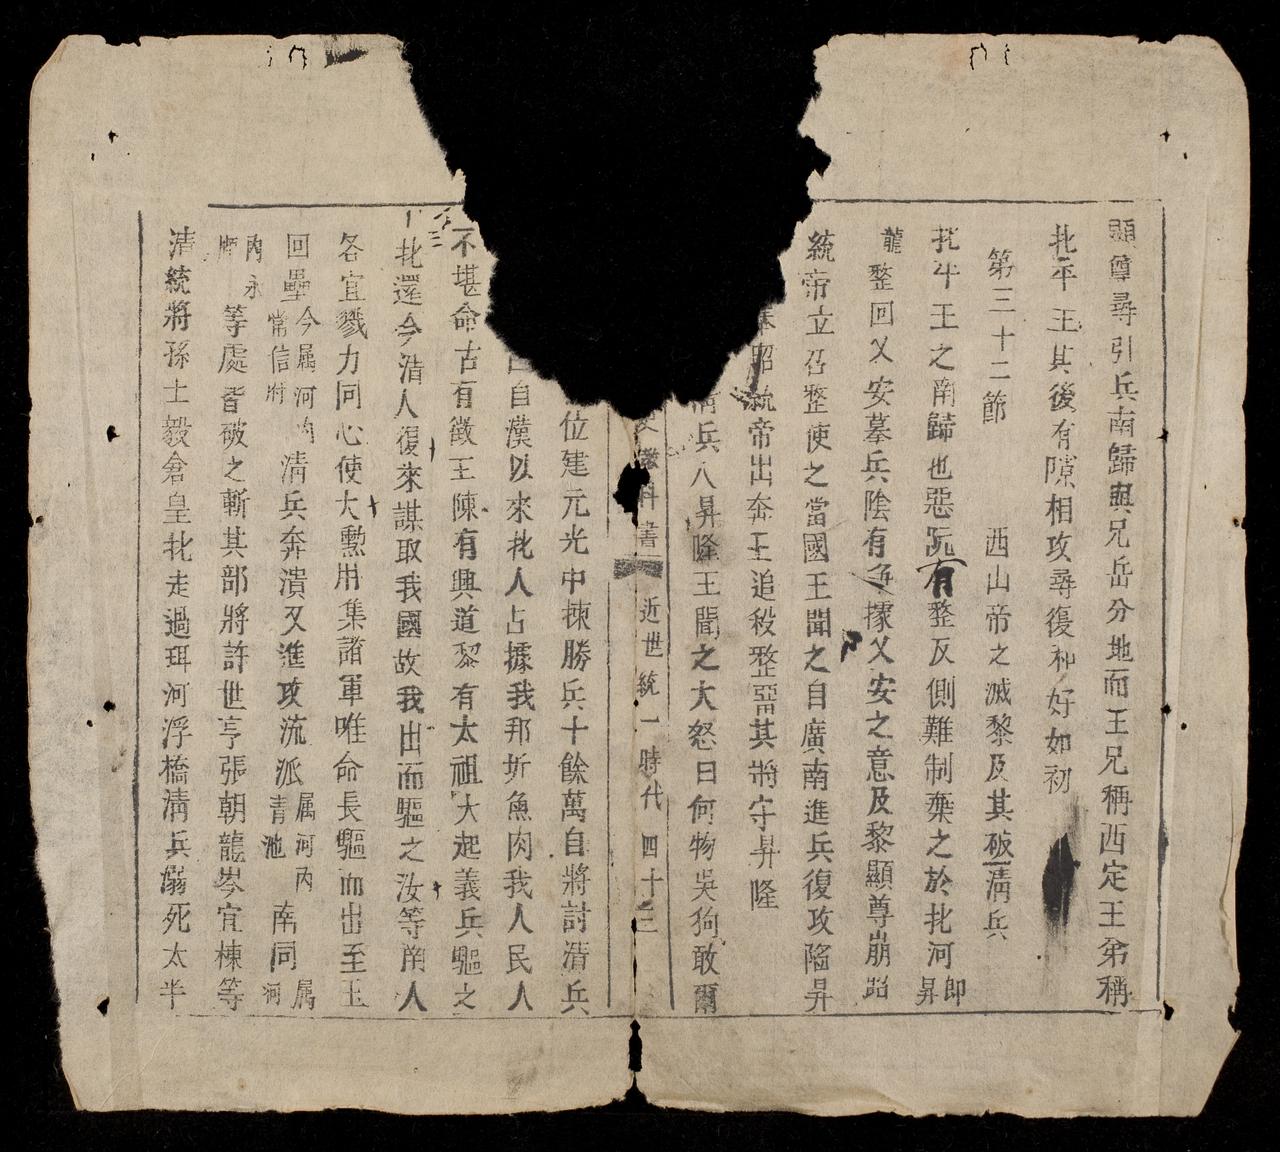 顯尊尋引兵南歸與兄岳分地而王兄稱西定王弟稱
北平王其後有隙相攻尋復和好如初
第三十二節 西山帝之滅黎及其破清兵
北平王之南歸也惡阮有整反側難制棄之於北河即昇
龍整回乂安募兵陰有爭據乂安之意及黎顯尊崩昭
統帝立召整使之當國王聞之自廣南進兵復攻陷昇
昭統帝出奔王追殺整畱其將守昇隆
清兵入昇隆王聞之大怒曰何物吳狗敢爾
科書 近世統一時代 四十三
位建元光中揀勝兵十餘萬自將討清兵
自漢以來北人占據我邦圻魚肉我人民人
不堪命古有徵王陳有興道黎有太祖大起義兵驅之
北還今清人復來謀取我國故我出而驅之汝等南人
各宜戮力同心使大勲用集諸軍唯命長驅而出至玉
回壘今属河內常信府清兵奔潰又進攻流派属河內青池南同属河
內永順等處皆破之斬其部將許世亨張朝龍岑宜棟等
清統將孫士毅倉皇北走過珥河浮橋清兵溺死太半